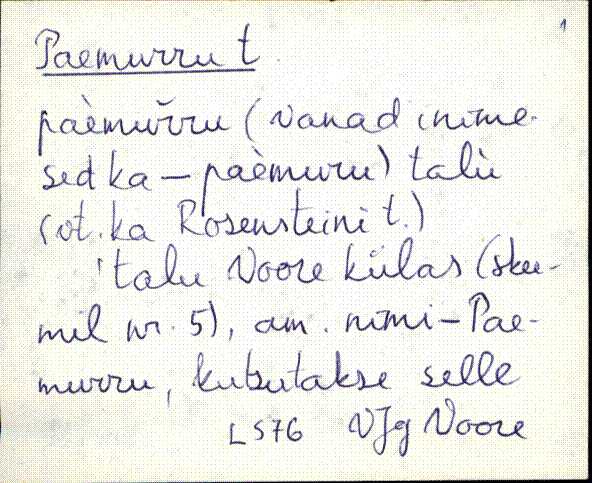 1
Paemurru t
paèmuřru (vanad inime-
sed ka – paèmuru) talù
(vt. ka Rosensteini t.)
'talu Voore külas (skee-
mil nr. 5), am. nimi – Pae-
murru, kutsutakse selle
LS76 VJg Voore